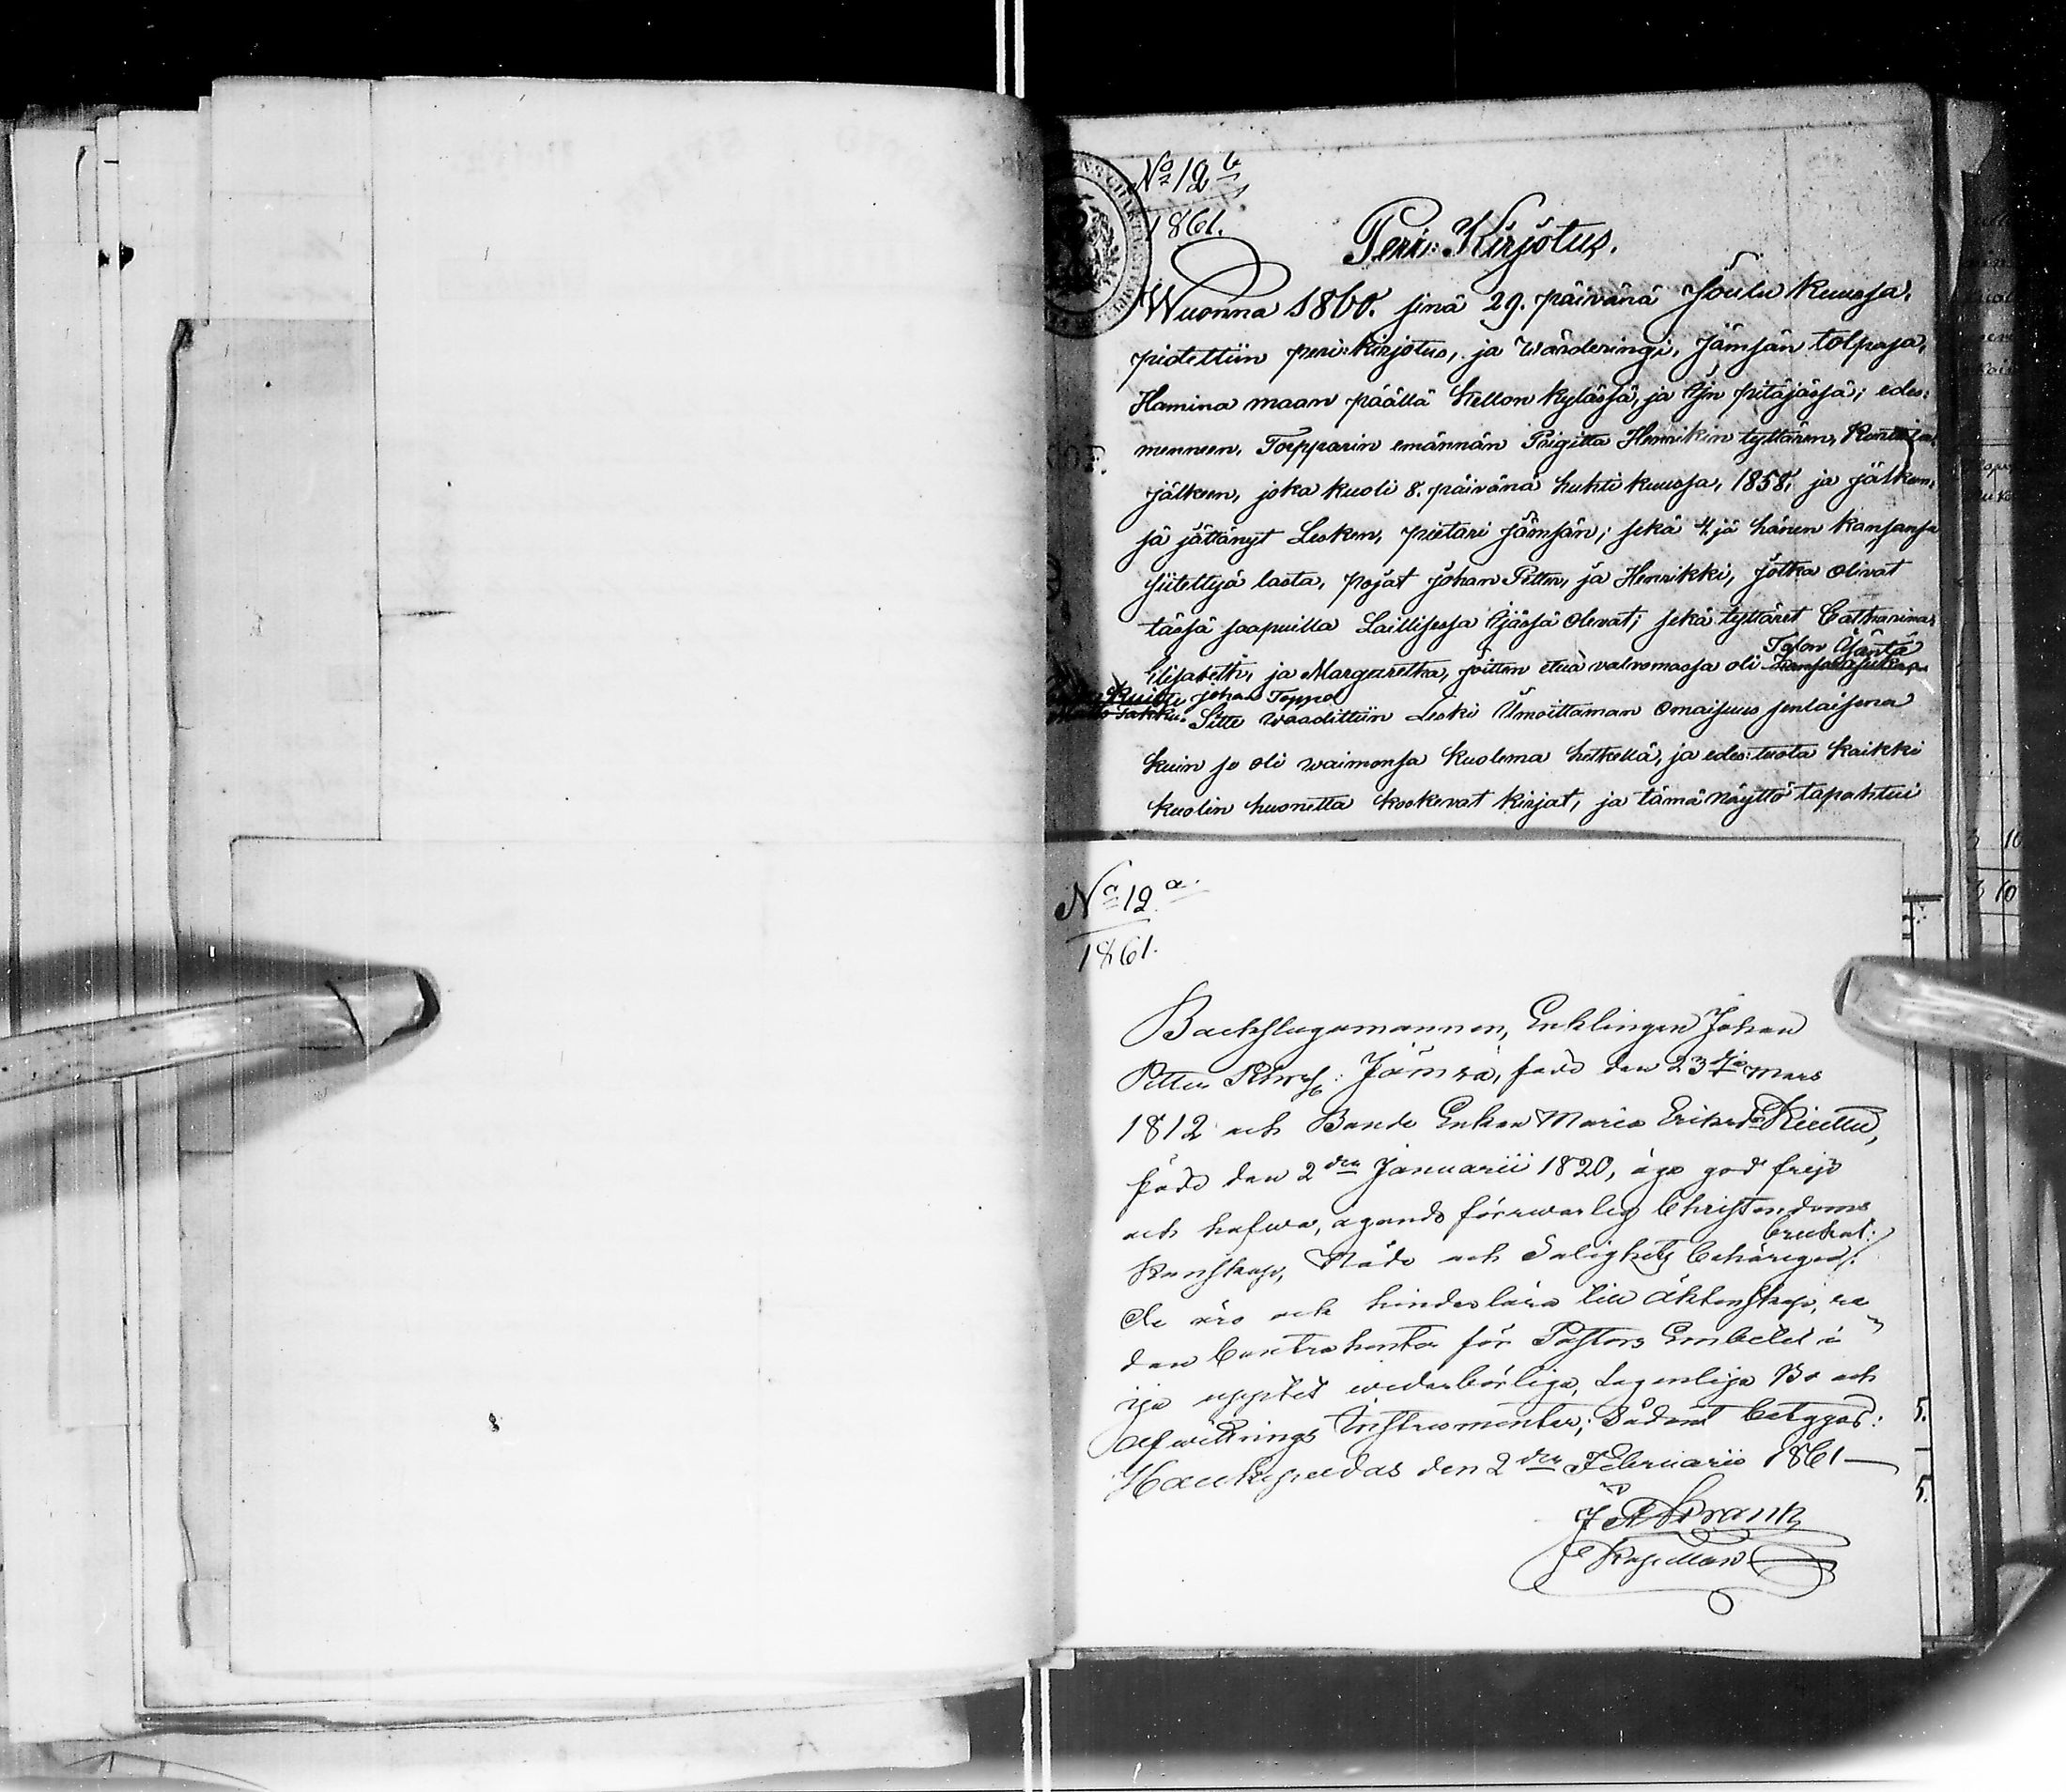 No 12 b
1861.
Peri: Kirjotus.
Wuonna 1860. sinä 29. päivänä Joulu kuussa.
pidettiin peri:kirjotus, ja Wärderingi, Jämsän tolpasa,
Hamina maan päällä Kellon kylässä, ja Ijn pitäjässä; edes:
menneen, Topparin emännän Prigitta Henrikin tyttären,
jälkeen, joka kuoli 8. päivänä huhti kuussa, 1858, ja jälkeen,
sä jättänyt Lesken, pietari Jämsän; sekä 4 jä hänen kansansa
siitettyä lasta, pojat Johan Petter, ja Henrikki, jotka olivat
tässä saapuilla Laillisessa Ijässä olevat; sekä tyttäret Catharina,
Talon Isäntä
Elisabeth, ja Margareetha, joitten etua valvomassa oli
Johan Toppel
Sitte waadittiin Leski Ilmoittaman Omaisuus senlaisena
kuin se oli waimonsa kuolema hetkellä, ja edes:tuota kaikki
kuolin huonetta koskevat kirjat, ja tämä näyttö tapahtui
No 12 a.
1861.
Backstugomannen, Enklingen Johan
Petter Jämsä, född den 23dje Mars
1812 och Bonde Enkan Maria Eriksdr
född den 2dra Januarii 1820, äga god frejd
och hafwa, egande förswarlig Christendoms
brukat:
Kunskap, Nåde och Salighets
de äro ock hinderlösa till Äktenskap, se
dan Contrahenter för Pastors Embetet i
uppstet wederbörliga, Lagenliga Bo och
afwittrings Instrumenter; Sådant betygas:
Haukipudas den 2dra Februarii 1861
Kapellan
5.
5.